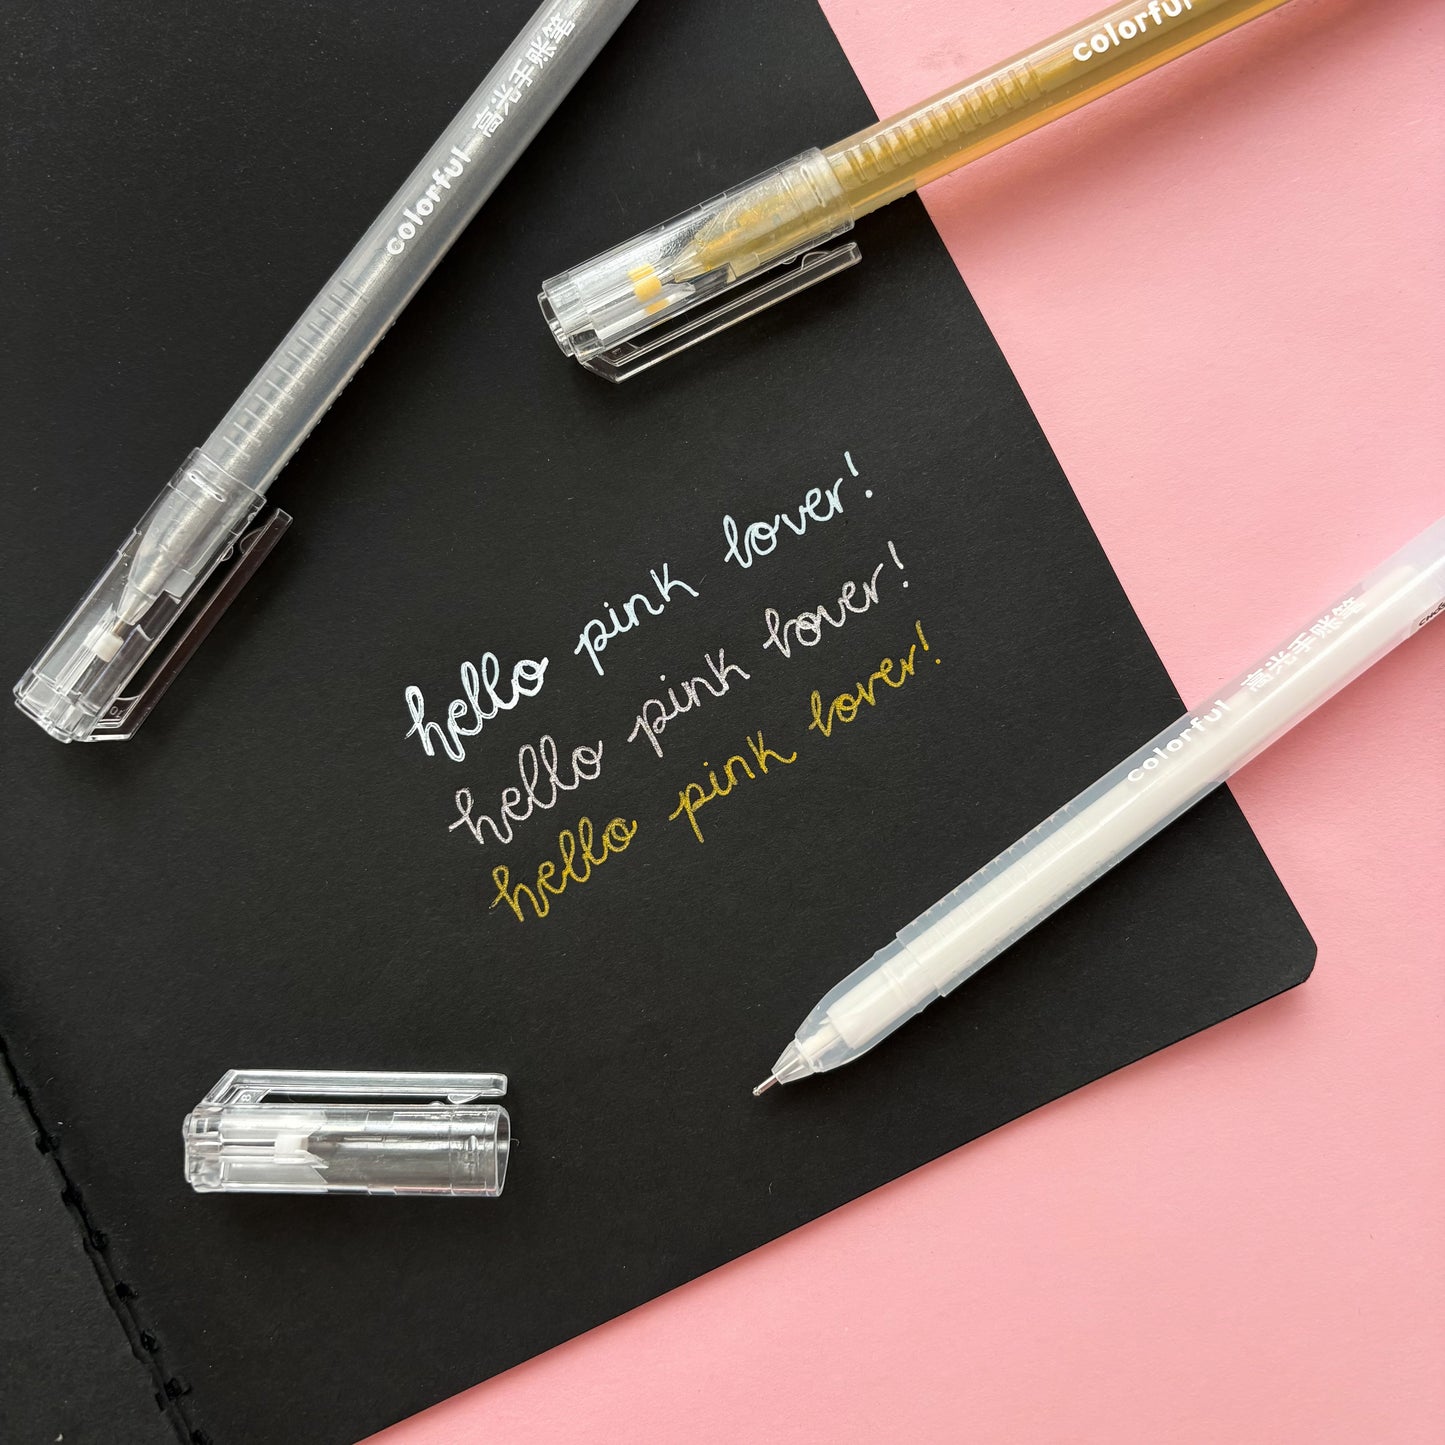 colorful 高光手账笔
colorful
hello pink lover!
hello pink lover!
hello pink lover!
colorful 高光手账笔